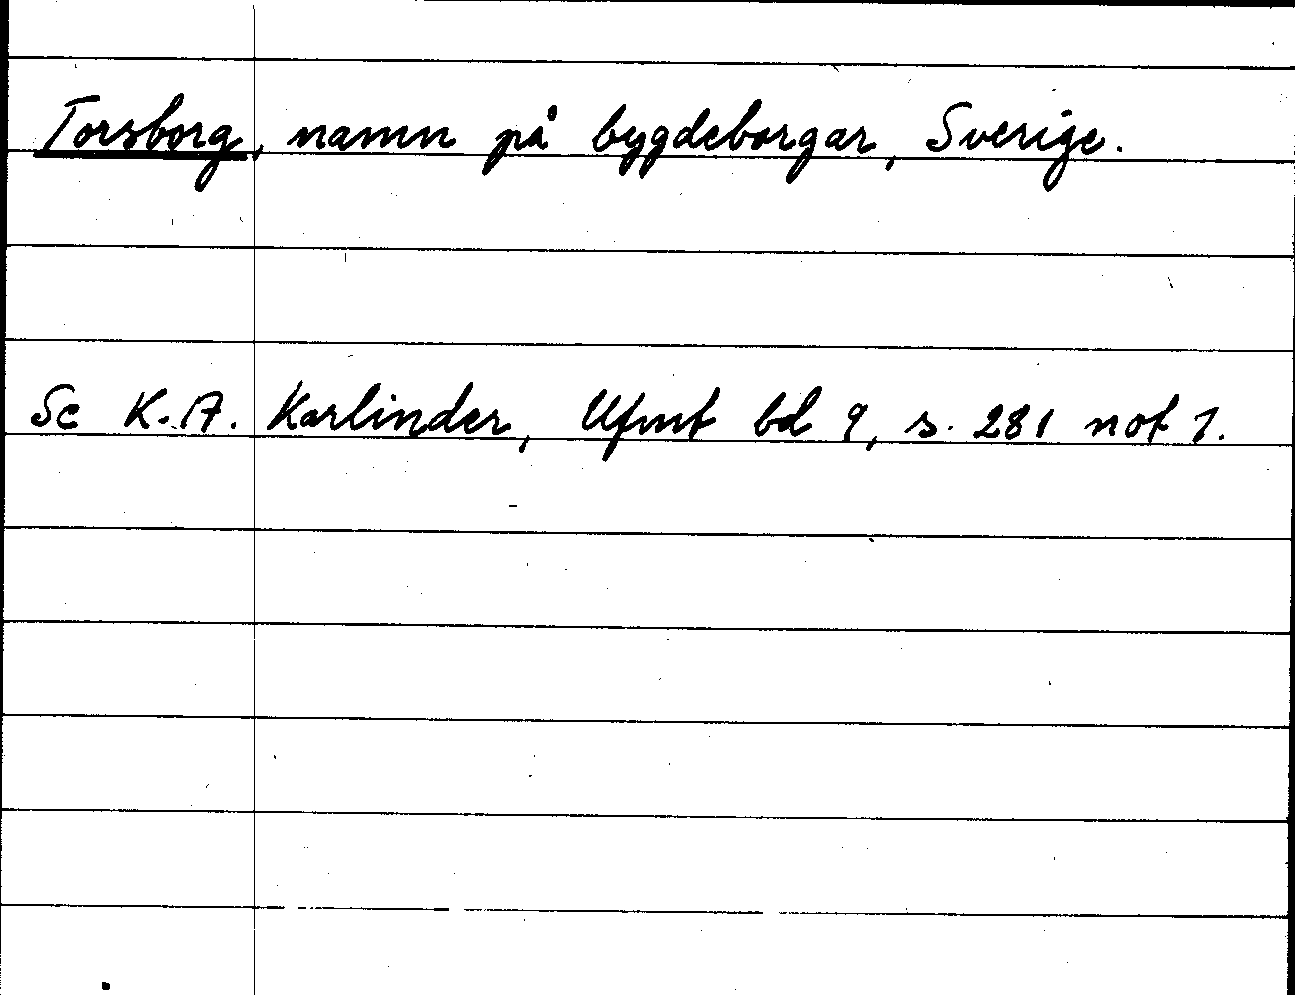 Torsborg, namn på bygdeborgar, Sverige.
Se K.A. Karlinder, Ufmt bd 9, s. 281 not 1.